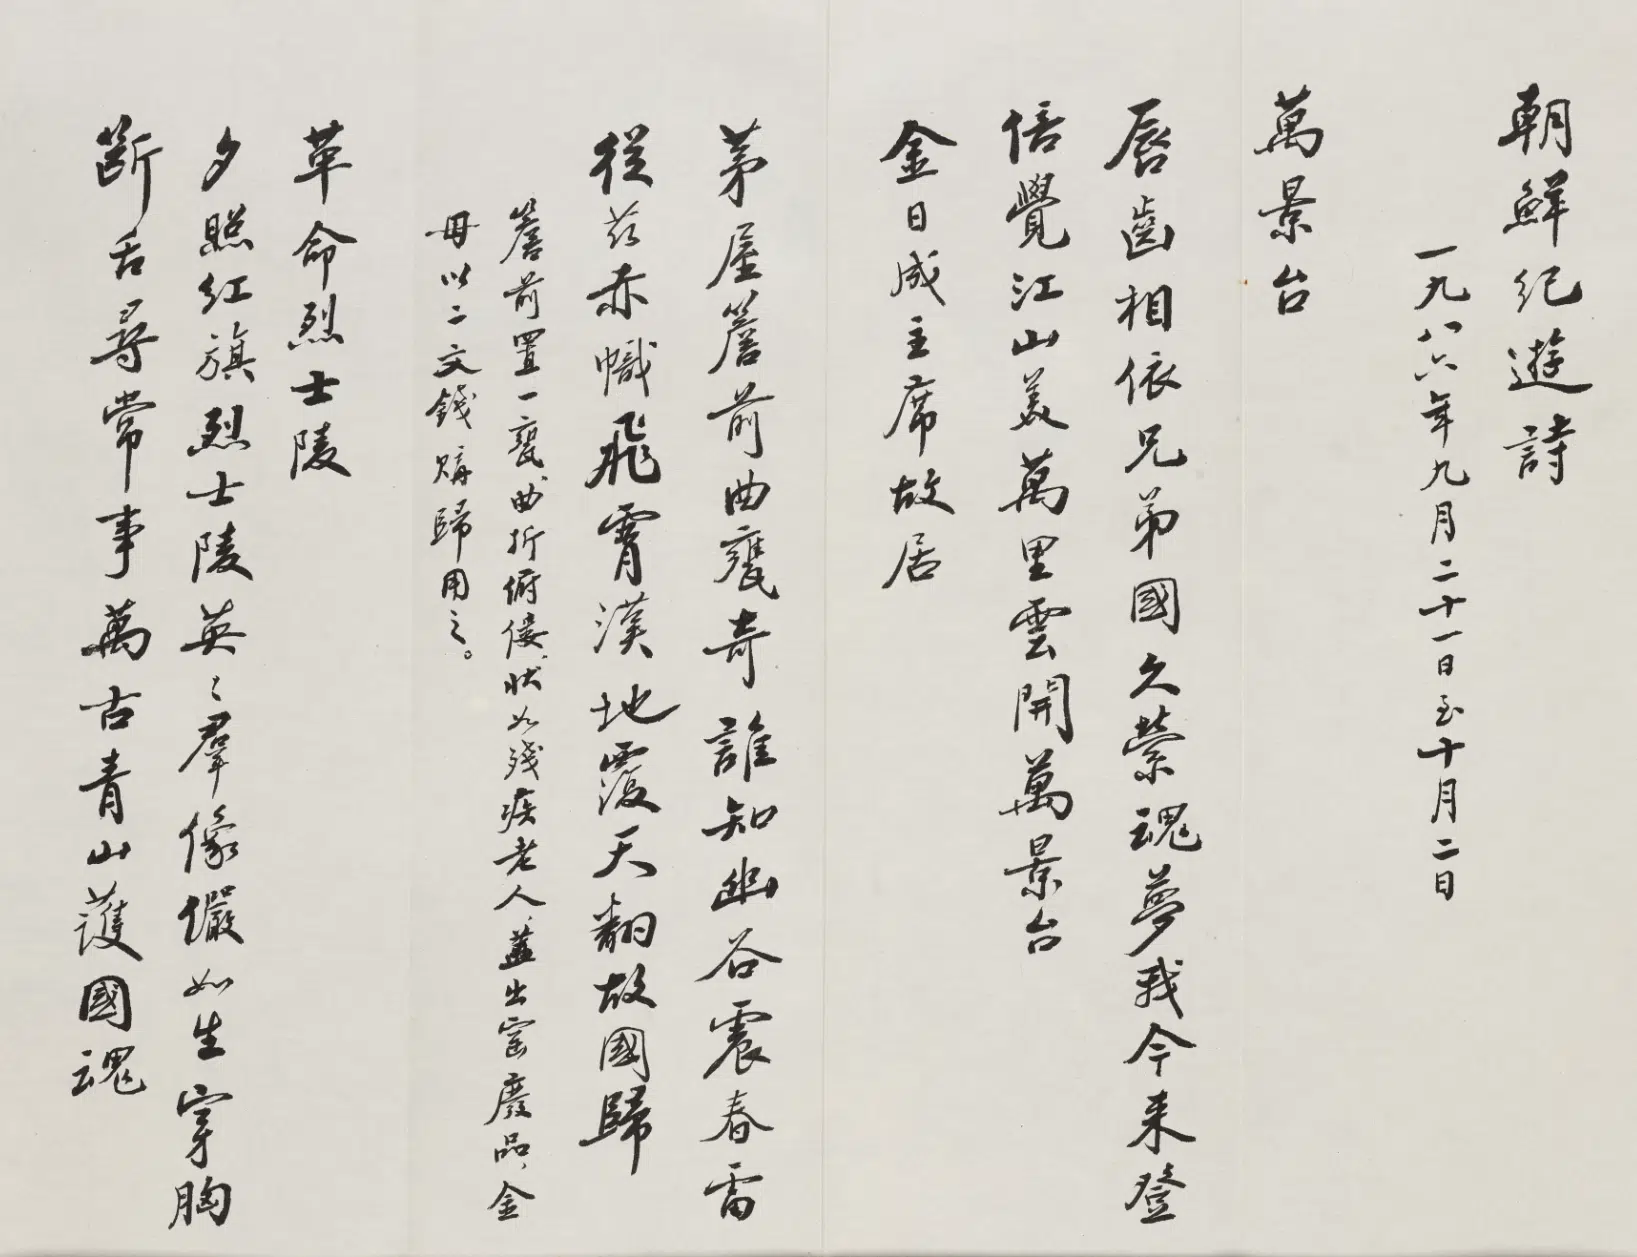 朝鮮紀遊詩
一九八六年九月二十一日至十月二日
萬景台
唇齒相依兄弟國久縈魂夢我今来登
倍覺江山美萬里雲開萬景台
金日成主席故居
茅屋簷前曲甕奇誰知幽谷震春雷
從茲赤幟飛霄漢地覆天翻故國歸
簷前置一甕，曲折俯僂，狀如殘疾老人，蓋出窑廢品，金
母以二文錢購歸用之。
革命烈士陵
夕照紅旗烈士陵英〻羣像儼如生穿胸
斷舌尋常事萬古青山護國魂